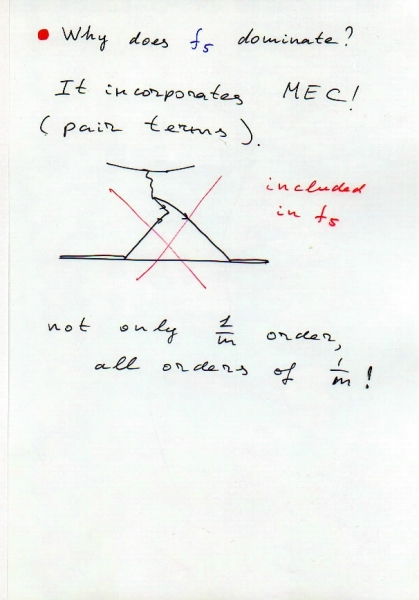 • Why does f₅ dominate?
It incorporates MEC!
(pair terms).
included
in f₅
not only 1/m order,
all orders of 1/m!